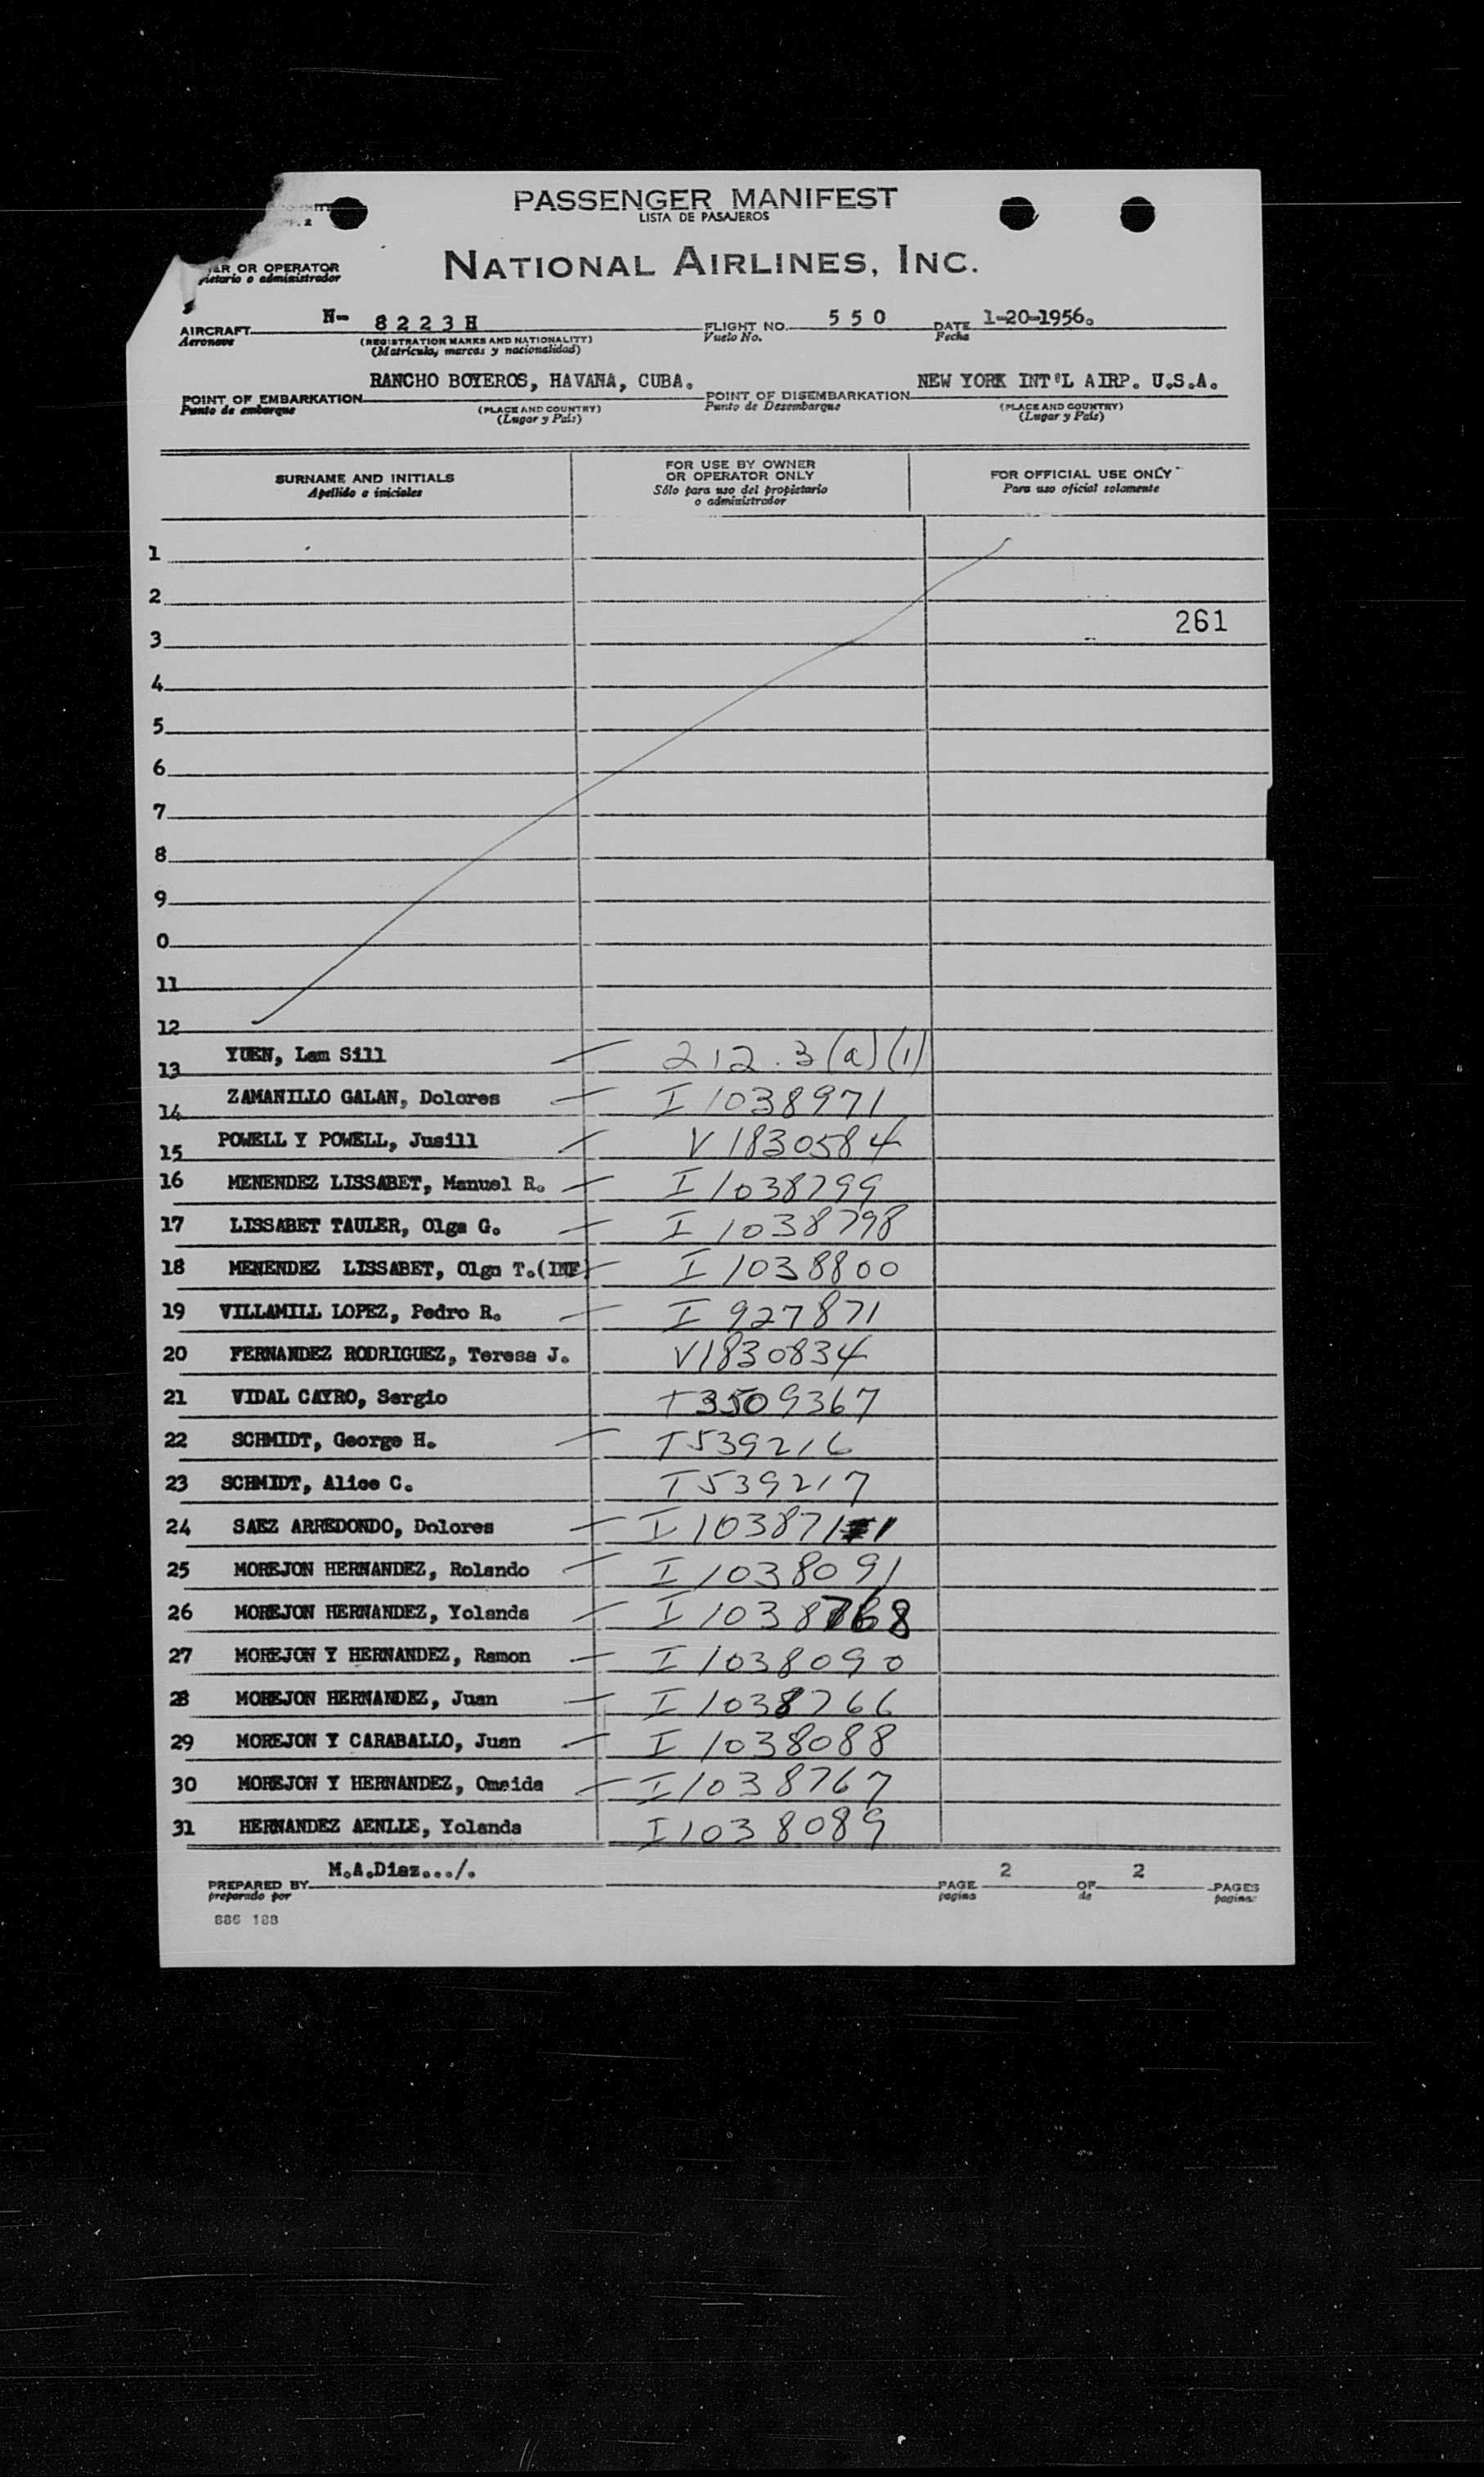 PASSENGER MANIFEST
LISTA DE PASAJEROS
NATIONAL AIRLINES, INC.
OR OPERATOR
o administrador
AIRCRAFT N- 8 2 2 3 H FLIGHT NO. 5 5 0 DATE 1-20-1956.
Aeronave (REGISTRATION MARKS AND NATIONALITY) Vuelo No. Fecha
(Matricula, marcas y nacionalidad)
RANCHO BOYEROS, HAVANA, CUBA. NEW YORK INT'L AIRP. U.S.A.
POINT OF EMBARKATION POINT OF DISEMBARKATION
Punto de embarque (PLACE AND COUNTRY) Punto de Desembarque (PLACE AND COUNTRY)
(Lugar y País) (Lugar y País)
SURNAME AND INITIALS FOR USE BY OWNER OR OPERATOR ONLY FOR OFFICIAL USE ONLY
Apellido e iniciales Sólo para uso del propietario o administrador Para uso oficial solamente
1
2
261
3
4
5
6
7
8
9
0
11
12
13 YUEN, Lam Sill 212.3(a)(1)
14 ZAMANILLO GALAN, Dolores I 1038971
15 POWELL Y POWELL, Jusill V 1830584
16 MENENDEZ LISSABET, Manuel R. I 1038799
17 LISSABET TAULER, Olga G. I 1038798
18 MENENDEZ LISSABET, Olga T.(INF) I 1038800
19 VILLAMILL LOPEZ, Pedro R. I 927871
20 FERNANDEZ RODRIGUEZ, Teresa J. V1830834
21 VIDAL CAYRO, Sergio T3509367
22 SCHMIDT, George H. T539216
23 SCHMIDT, Alice C. T539217
24 SAEZ ARREDONDO, Dolores
25 MOREJON HERNANDEZ, Rolando I 1038091
26 MOREJON HERNANDEZ, Yolanda I 1038768
27 MOREJON Y HERNANDEZ, Ramon I 1038090
28 MOREJON HERNANDEZ, Juan I 1038766
29 MOREJON Y CARABALLO, Juan I 1038088
30 MOREJON Y HERNANDEZ, Omaida I 1038767
31 HERNANDEZ AENLLE, Yolanda I 1038089
PREPARED BY M.A.Diaz.../. PAGE 2 OF 2 PAGES
preparado por pagina de paginas
886 188